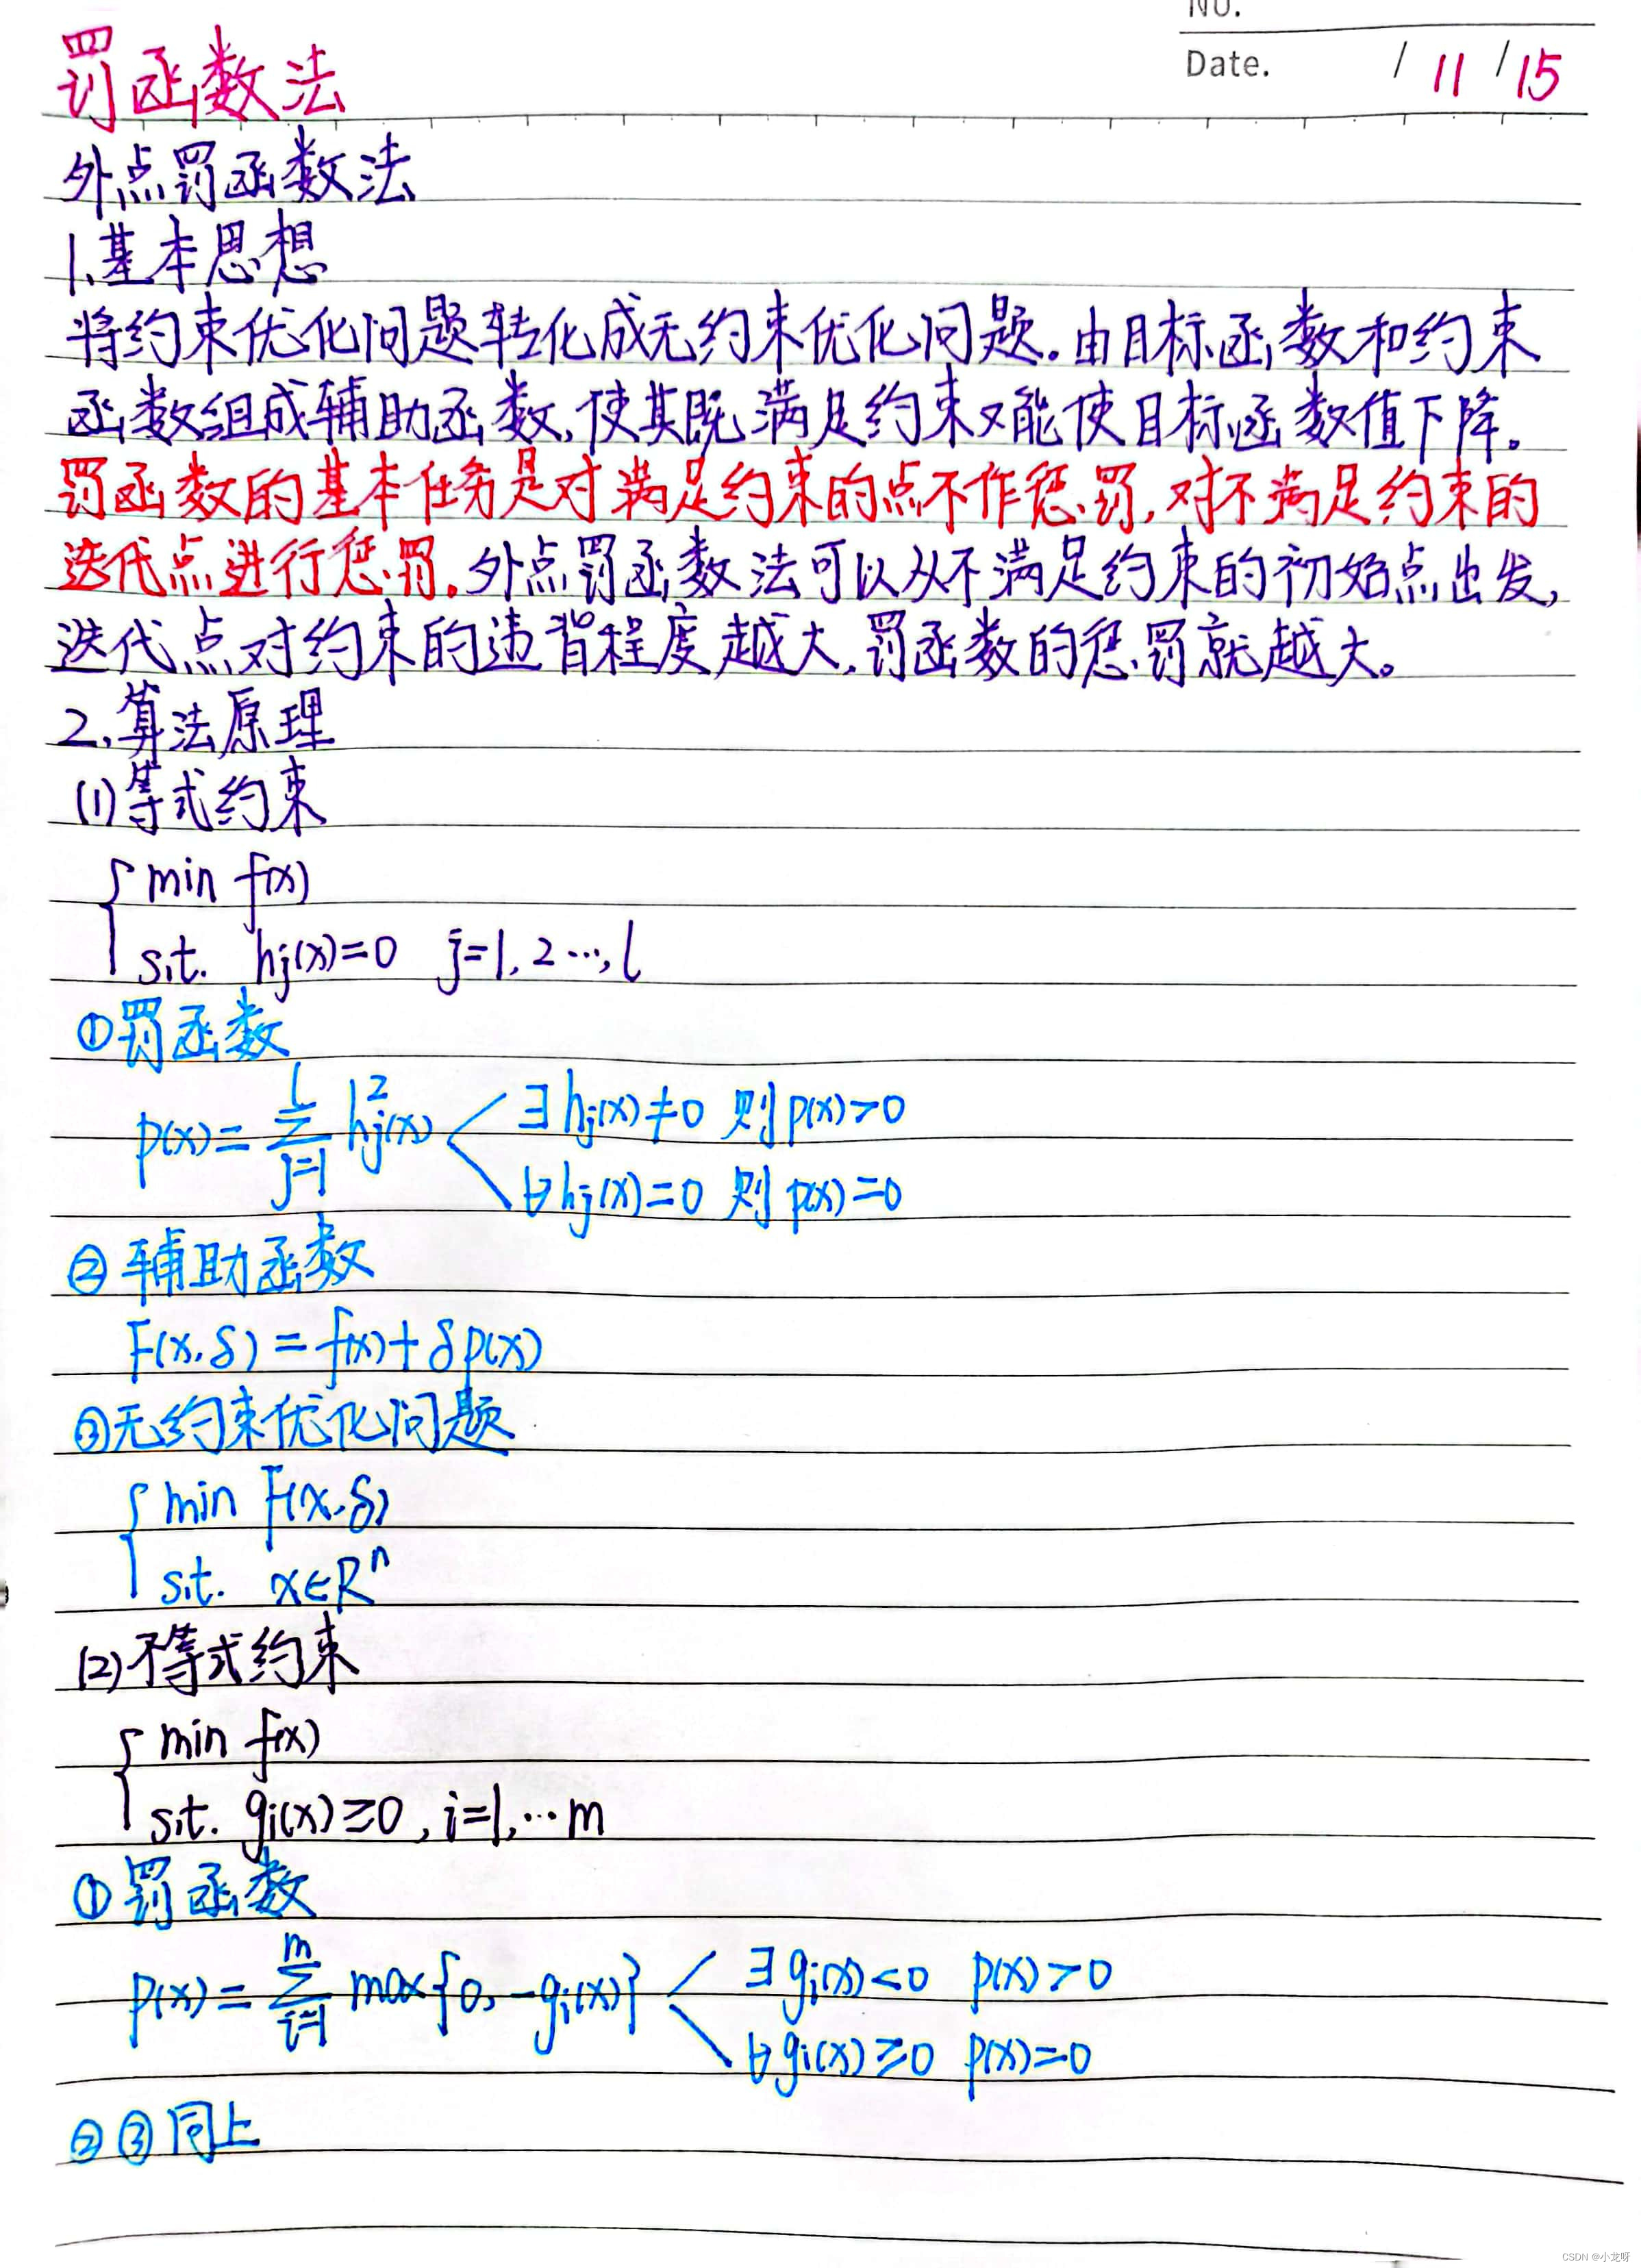 NO.
Date. / 11 / 15
罚函数法
外点罚函数法
1.基本思想
将约束优化问题转化成无约束优化问题。由目标函数和约束
函数组成辅助函数,使其既满足约束又能使目标函数值下降。
罚函数的基本任务是对满足约束的点不作惩罚,对不满足约束的
迭代点进行惩罚。外点罚函数法可以从不满足约束的初始点出发,
迭代点对约束的违背程度越大,罚函数的惩罚就越大。
2.算法原理
(1)等式约束
{ min f(x)
s.t. hj(x)=0 j=1,2…,l
①罚函数
p(x)= ∑_{j=1}^{l} hj²(x) < ∃hj(x)≠0 则p(x)>0
∀hj(x)=0 则p(x)=0
②辅助函数
F(x,δ)=f(x)+δp(x)
③无约束优化问题
{ min F(x,δ)
s.t. x∈Rⁿ
(2)不等式约束
{ min f(x)
s.t. gi(x)≥0, i=1,…m
①罚函数
p(x)= ∑_{i=1}^{m} max{0,-gi(x)} < ∃gi(x)<0 p(x)>0
∀gi(x)≥0 p(x)=0
②③同上
CSDN @小龙呀